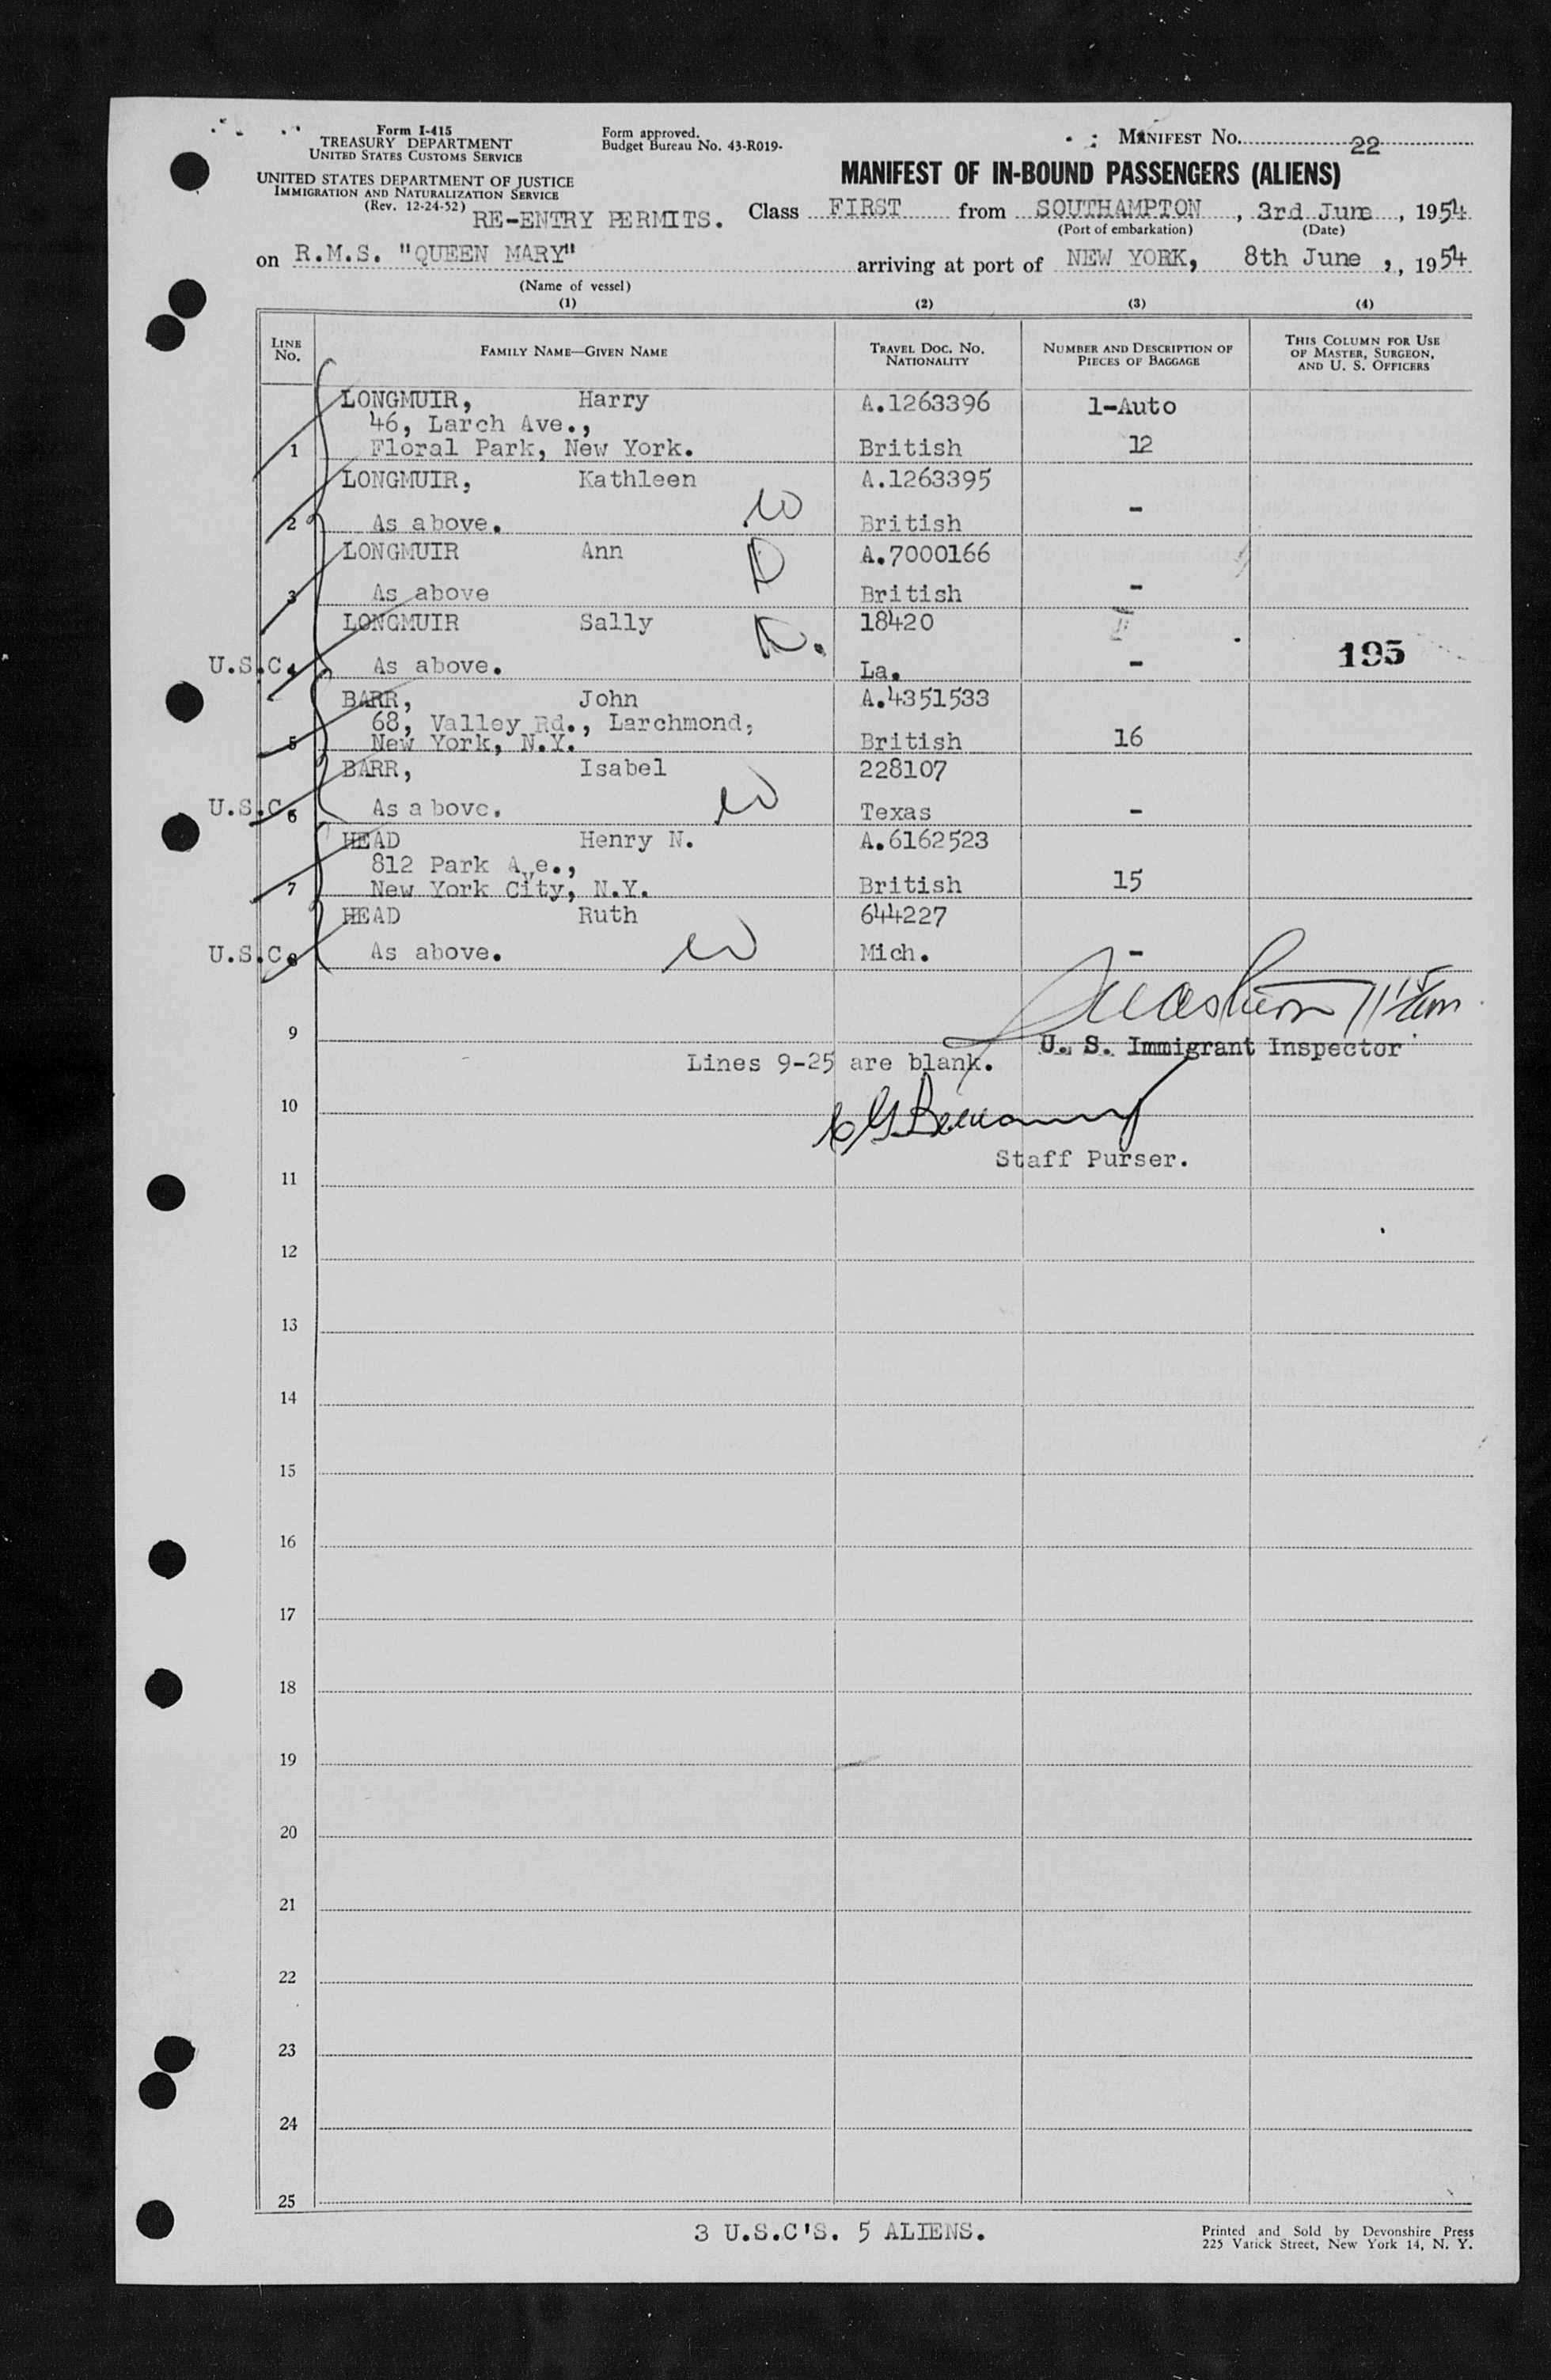 Form I-415
TREASURY DEPARTMENT
UNITED STATES CUSTOMS SERVICE
UNITED STATES DEPARTMENT OF JUSTICE
IMMIGRATION AND NATURALIZATION SERVICE
(Rev. 12-24-52)
RE-ENTRY PERMITS.
Form approved.
Budget Bureau No. 43-R019-
MANIFEST No. 22
MANIFEST OF IN-BOUND PASSENGERS (ALIENS)
Class FIRST from SOUTHAMPTON, 3rd June, 1954
(Port of embarkation) (Date)
on R.M.S. "QUEEN MARY" arriving at port of NEW YORK, 8th June , , 1954
(Name of vessel)
(1) (2) (3) (4)
LINE No. FAMILY NAME—GIVEN NAME TRAVEL DOC. NO. NATIONALITY NUMBER AND DESCRIPTION OF PIECES OF BAGGAGE THIS COLUMN FOR USE OF MASTER, SURGEON, AND U. S. OFFICERS
LONGMUIR, Harry A.1263396 1-Auto
46, Larch Ave.,
1 Floral Park, New York. British 12
LONGMUIR, Kathleen A.1263395
2 As above. British -
LONGMUIR Ann A.7000166
3 As above British -
LONGMUIR Sally 18420
U.S.C. 4 As above. La. - 195
BARR, John A.4351533
68, Valley Rd., Larchmond,
5 New York, N.Y. British 16
BARR, Isabel 228107
U.S.C. 6 As above. Texas -
HEAD Henry N. A.6162523
812 Park Ave.,
7 New York City, N.Y. British 15
HEAD Ruth 644227
U.S.C. 8 As above. Mich. -
9
U. S. Immigrant Inspector
Lines 9-25 are blank.
10
Staff Purser.
11
12
13
14
15
16
17
18
19
20
21
22
23
24
25
3 U.S.C'S. 5 ALIENS.
Printed and Sold by Devonshire Press
225 Varick Street, New York 14, N. Y.